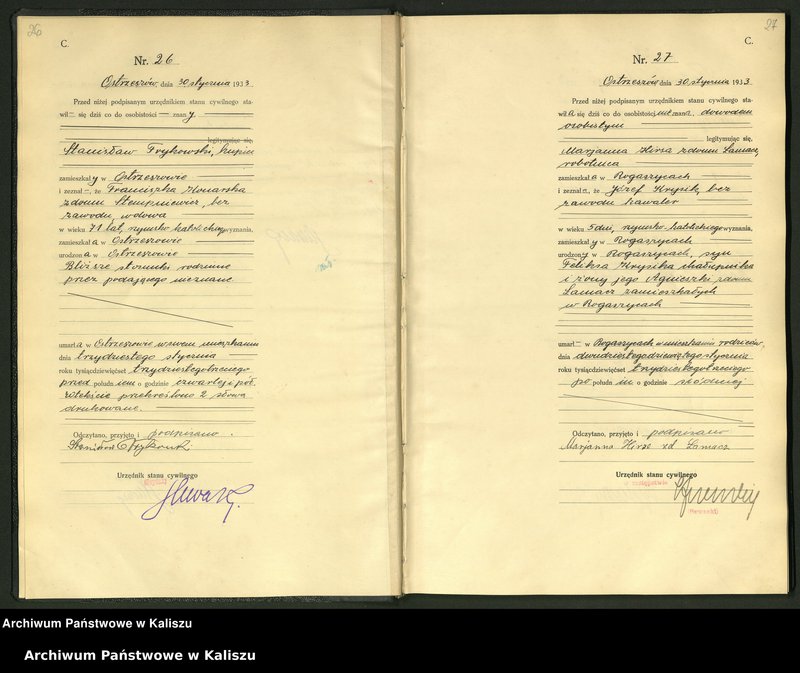 26
C.
Nr. 26
Ostrzeszów, dnia 30 stycznia 1933
Przed niżej podpisanym urzędnikiem stanu cywilnego sta-
wił – się dziś co do osobistości — znany
legitymując się,
Stanisław Frykowski, kupiec
zamieszkały w Ostrzeszowie
i zeznał –, że Franciszka
zdomu Stempniewicz, bez
zawodu, wdowa
w wieku 71 lat, rzymsko katolickiego wyznania,
zamieszkała w Ostrzeszowie
urodzona w Ostrzeszowie
Bliższe stosunki rodzinne
przez podającego nieznane
umarła w Ostrzeszowie w swem mieszkaniu
dnia trzydziestego stycznia
roku tysiącdziewięćset trzydziestegotrzeciego
przed połudn iem o godzinie czwartej i pół.
przekreślono 2 słowa
drukowane.
Odczytano, przyjęto i podpisano.
Stanisław Frykowski
Urzędnik stanu cywilnego
27
C.
Nr. 27
Ostrzeszów, dnia 30 stycznia 1933
Przed niżej podpisanym urzędnikiem stanu cywilnego sta-
wiła się dziś co do osobistości, nieznana, dowodem
osobistym
legitymując się,
Marjanna Hirsa zdomu Lamacz,
robotnica
zamieszkała w Rogaszycach
i zeznał –, że Józef Krysik, bez
zawodu kawaler
w wieku 5 dni, rzymsko-katolickiego wyznania,
zamieszkały w Rogaszycach
urodzony w Rogaszycach, syn
Feliksa Krysika chałupnika
i żony jego Agnieszki zdomu
Lamacz zamieszkałych
w Rogaszycach
umarł – w Rogaszycach w mieszkaniu rodziców,
dnia dwudziestegodziewiątego stycznia
roku tysiącdziewięćset trzydziestegotrzeciego
po połudn iu o godzinie siódmej
Odczytano, przyjęto i podpisano
Marjanna Hirse zd Lamacz
Urzędnik stanu cywilnego
w zastępstwie
Archiwum Państwowe w Kaliszu
Archiwum Państwowe w Kaliszu